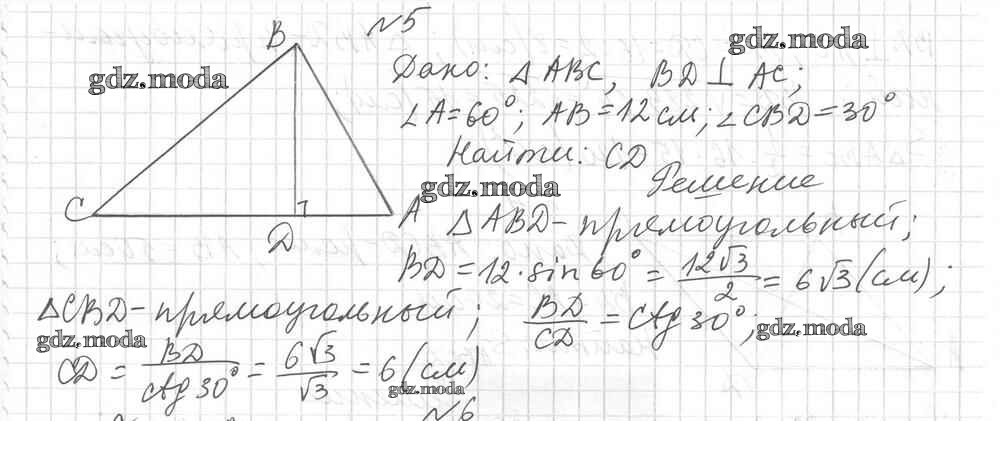 №5
B
gdz.moda
gdz.moda
Дано: △ABC, BD ⊥ AC;
∠A=60°; AB=12см; ∠CBD=30°
Найти: CD
gdz.moda
Решение
C
D
A
△ABD - прямоугольный;
BD = 12·sin60° = 12√3/2 = 6√3 (см);
△CBD - прямоугольный; BD/CD = ctg 30°;
gdz.moda
gdz.moda
CD = BD/ctg 30° = 6√3/√3 = 6 (см)
gdz.moda
№6